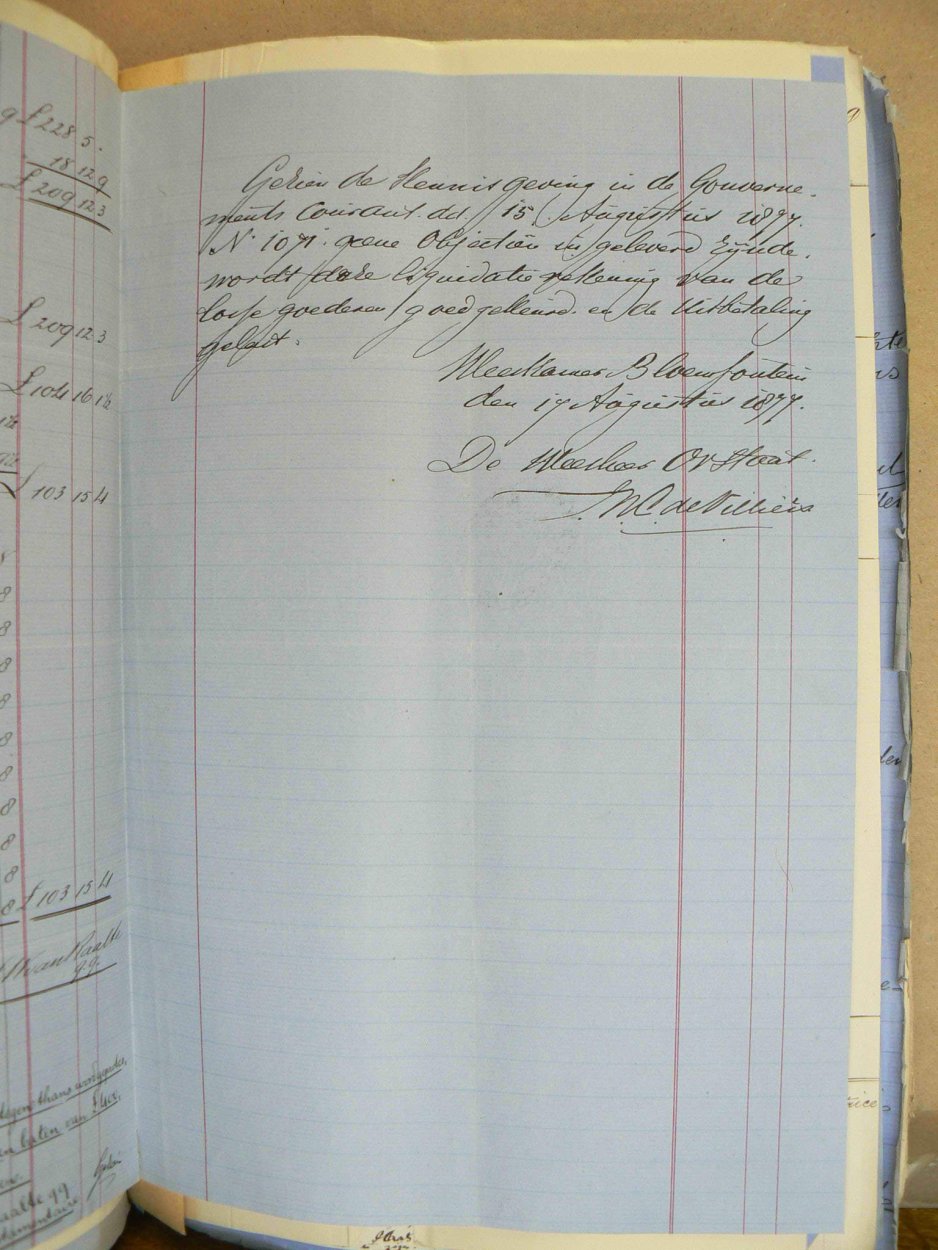 g £ 228 5 .
18 12 9
£ 209 12 3
£ 209 12 3
£ 104 16 1½
£ 103 15 4
8
8
8
8
8
8
8
8
8
8 £ 103 15 4
van Raalte
q.q.
baten van £400.
Raalte qq
Gezien de Kennisgeving in de Gouverne-
ments Courant dd. 15 Augustus 1877.
N. 1071. geene Objectien ingeleverd zijnde.
wordt deze liquidatie rekening van de
losse goederen goedgekeurd en de Uitbetaling
gelast.
Weeskamer Bloemfontein
den 17 Augustus 1877.
De Weesheer Or Staat.
de Villiers